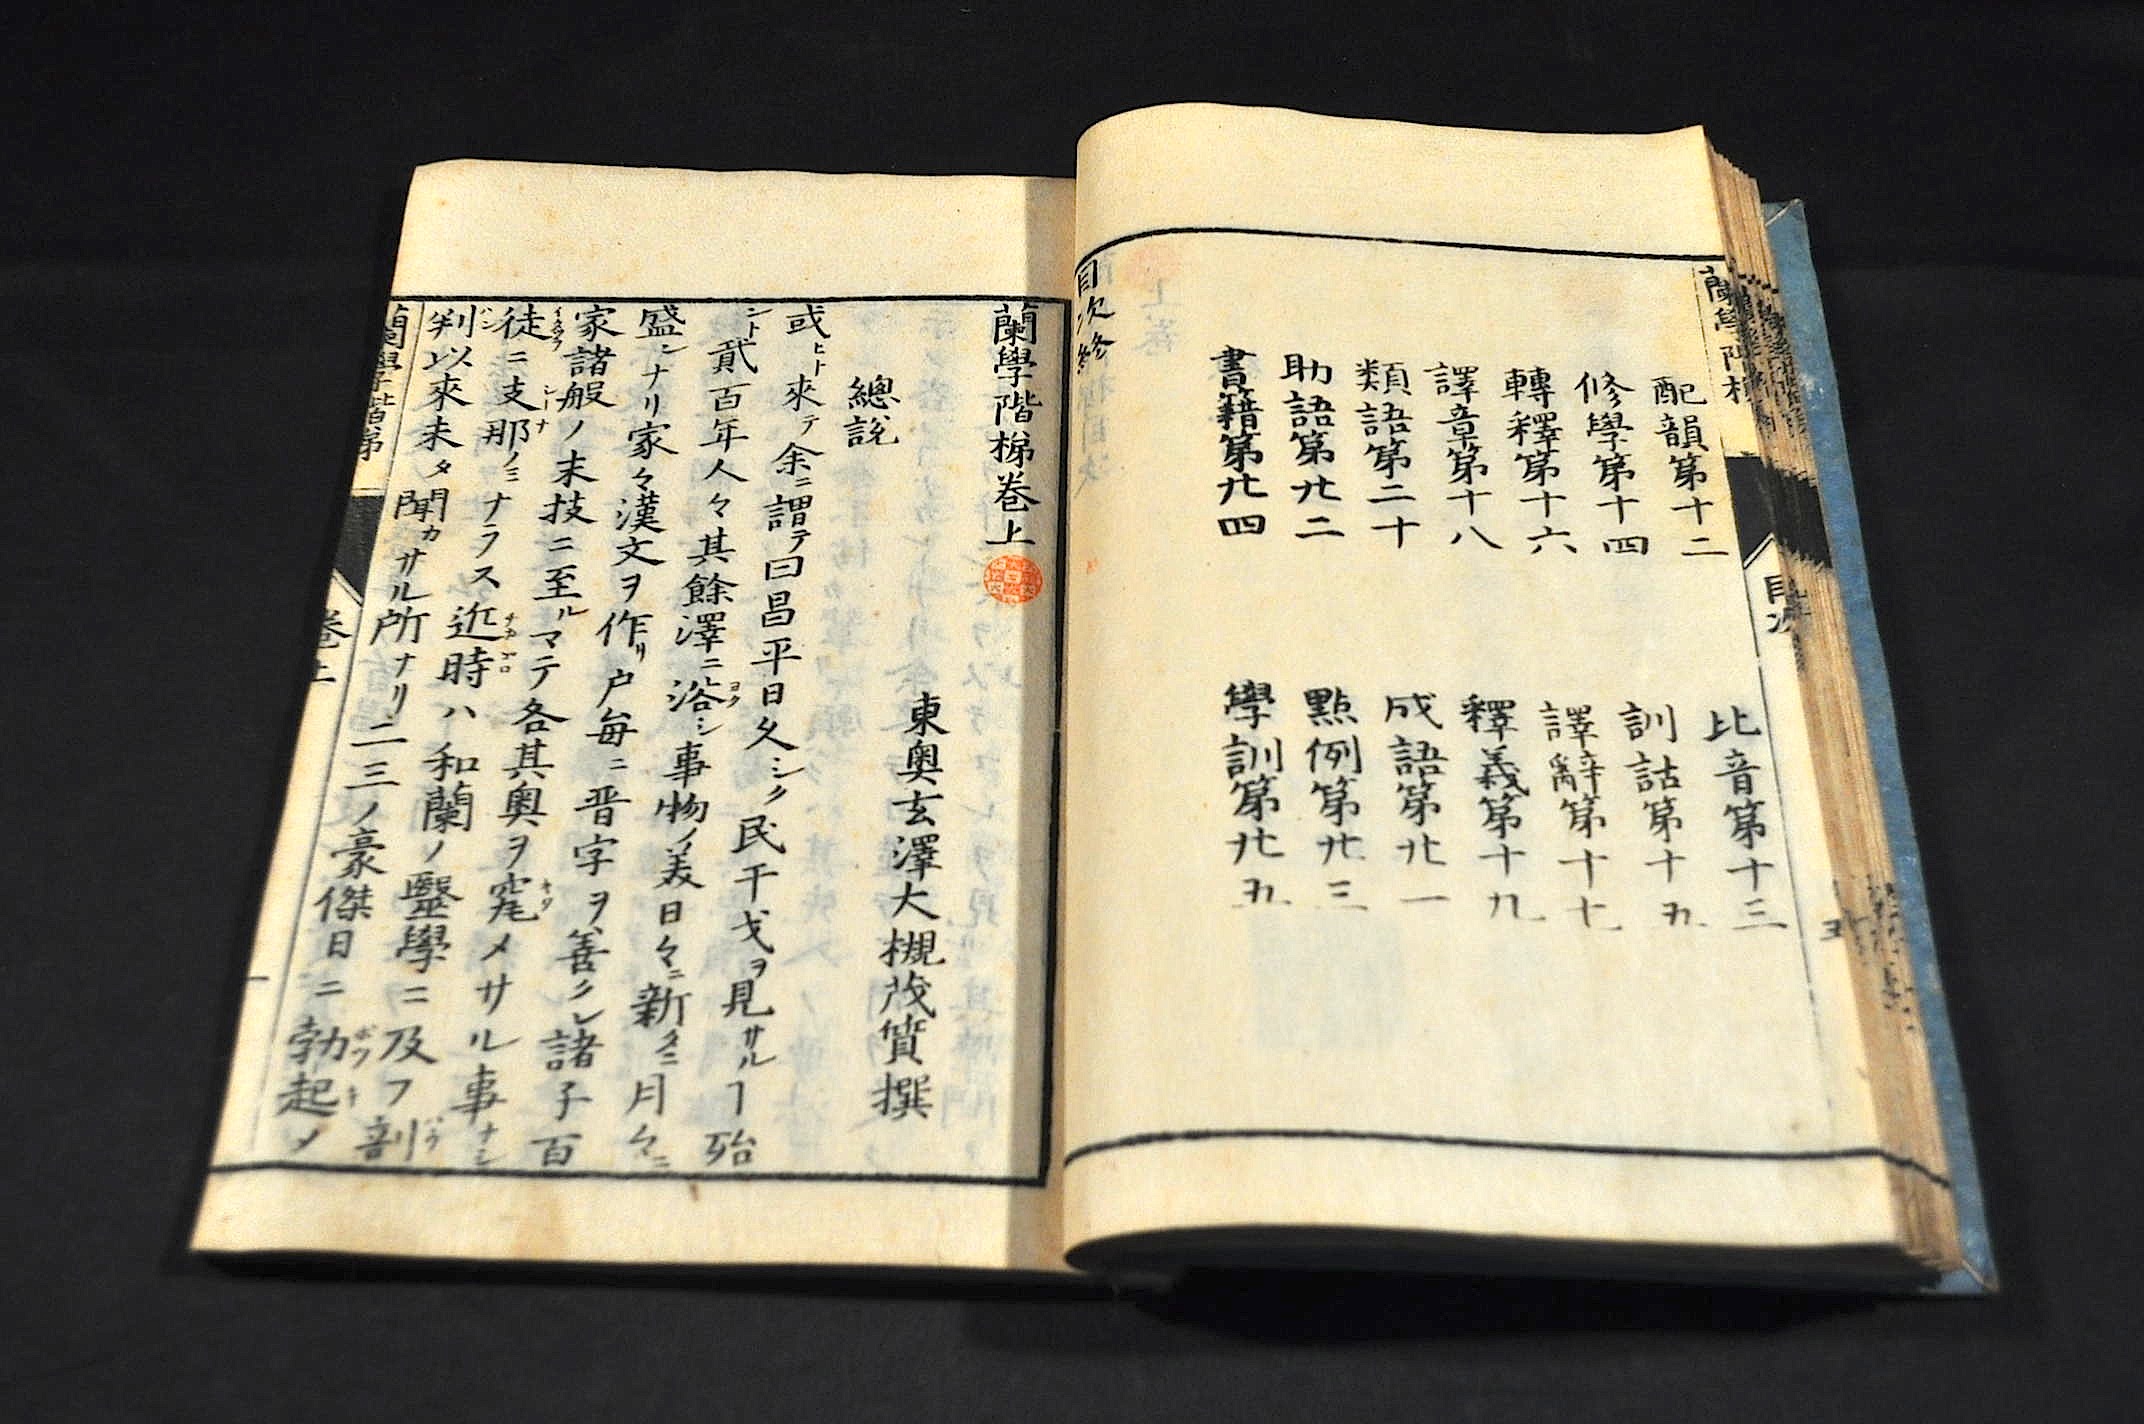 配韻第十二
比音第十三
修學第十四
訓詁第十五
轉釋第十六
譯辭第十七
譯章第十八
釋義第十九
類語第二十
成語第廿一
助語第廿二
點例第廿三
書籍第廿四
學訓第廿五
目次終
蘭學階梯卷上
東奧玄澤大槻茂質撰
總說
或ヒト來テ余ニ謂テ曰昌平日久シク民干戈ヲ見サルヿ殆
ント貳百年人々其餘澤ニ浴シ事物ノ美日々ニ新タニ月々ニ
盛ンナリ家々漢文ヲ作リ戶每ニ晋字ヲ善クシ諸子百
家諸般ノ末技ニ至ルマテ各其奧ヲ窕メサル事ナシ
徒ニ支那ノミナラス近時ハ和蘭ノ毉學ニ及フ剖
判以來未タ聞カサル所ナリ二三ノ豪傑日ニ勃起メ
蘭學階梯
卷上
一